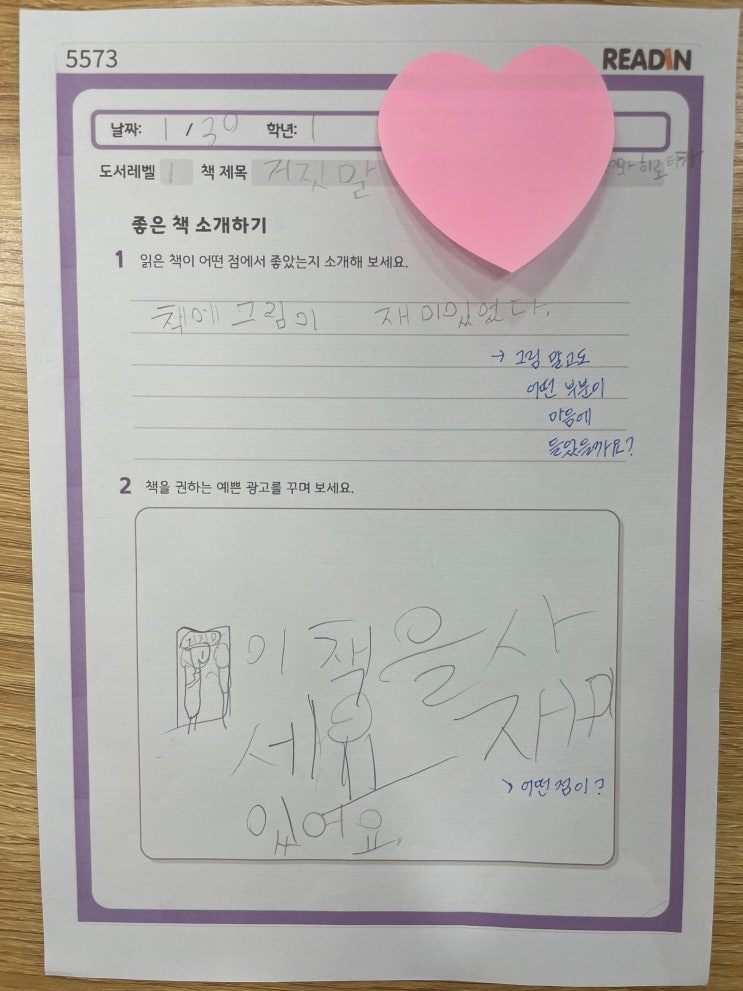 5573
READiN
날짜: 1 / 30 학년: 1
도서레벨 1 책 제목 거짓말
좋은 책 소개하기
1 읽은 책이 어떤 점에서 좋았는지 소개해 보세요.
책에 그림이 재미있었다.
→ 그림 말고도
어떤 부분이
마음에
들었을까요?
2 책을 권하는 예쁜 광고를 꾸며 보세요.
거짓말
이 책을 사
세요 재미
→ 어떤 점이?
있어요.